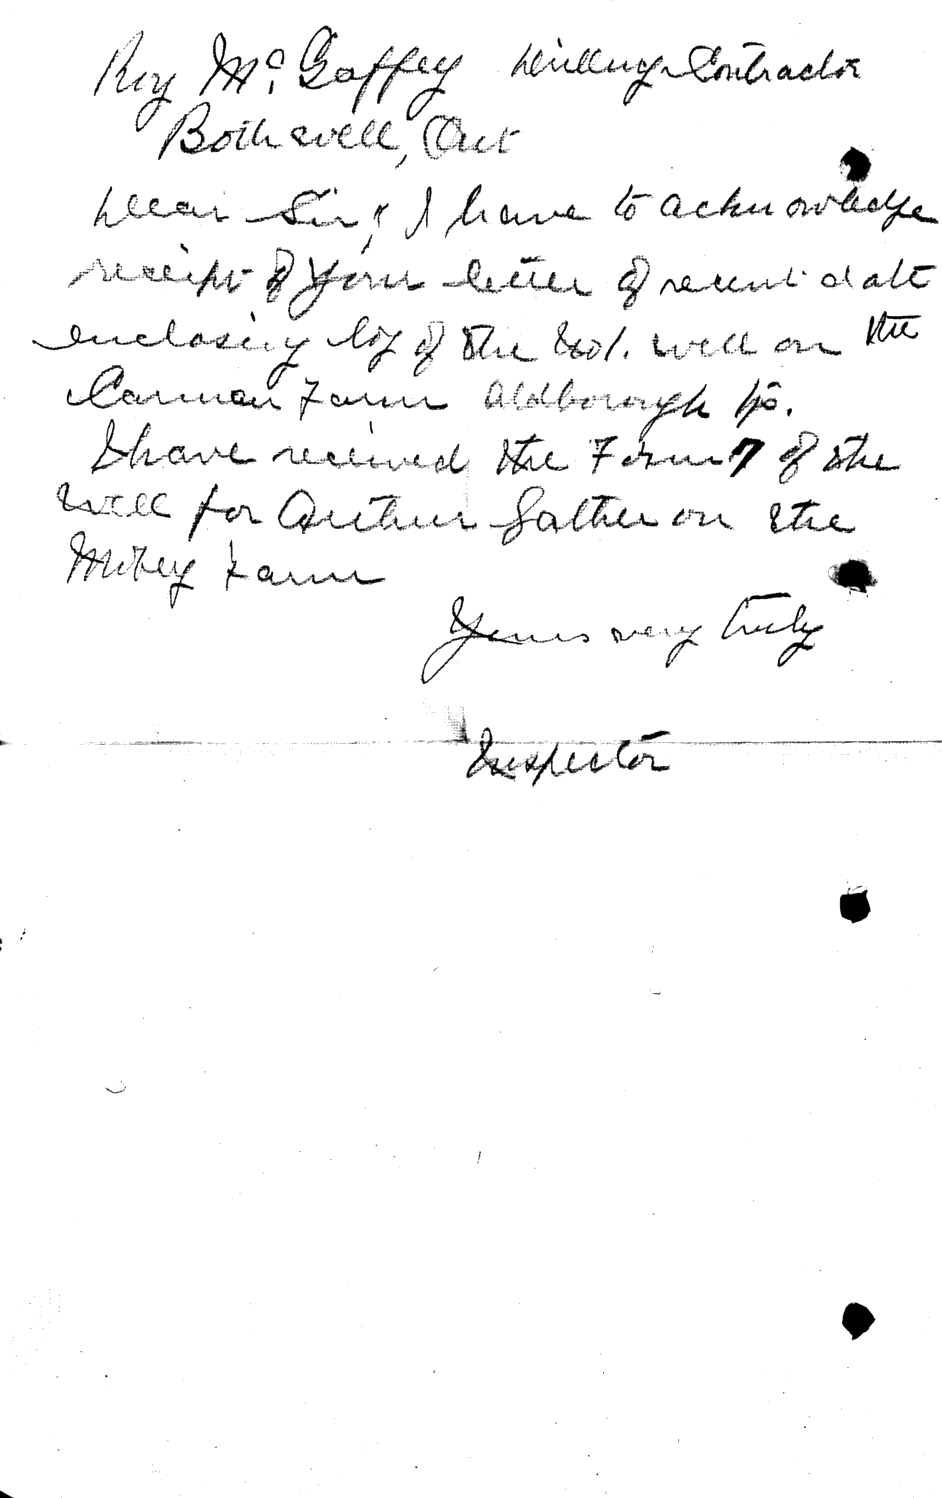 Roy Mc. Gaffey Drilling Contractor
Bothwell, Ont
Dear Sir; I have to acknowledge
receipt of your letter of recent date
enclosing log of the No1. well on the
Carman Farm Aldborough tp.
I have received the Form 7 of the
well for Arthur on the
Farm
Yours very truly
Inspector